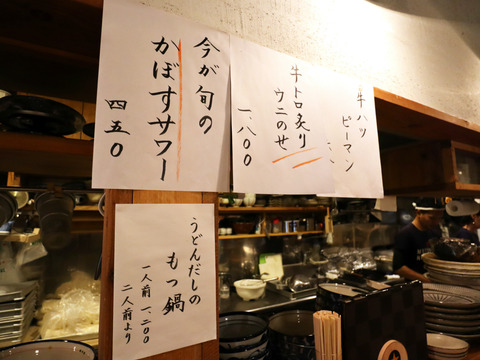 今が旬の
かぼすサワー
四五〇
牛トロ炙り
ウニのせ
一、八〇〇
牛ハツ
ピーマン
うどんだしの
もつ鍋
一人前 一、二〇〇
二人前より